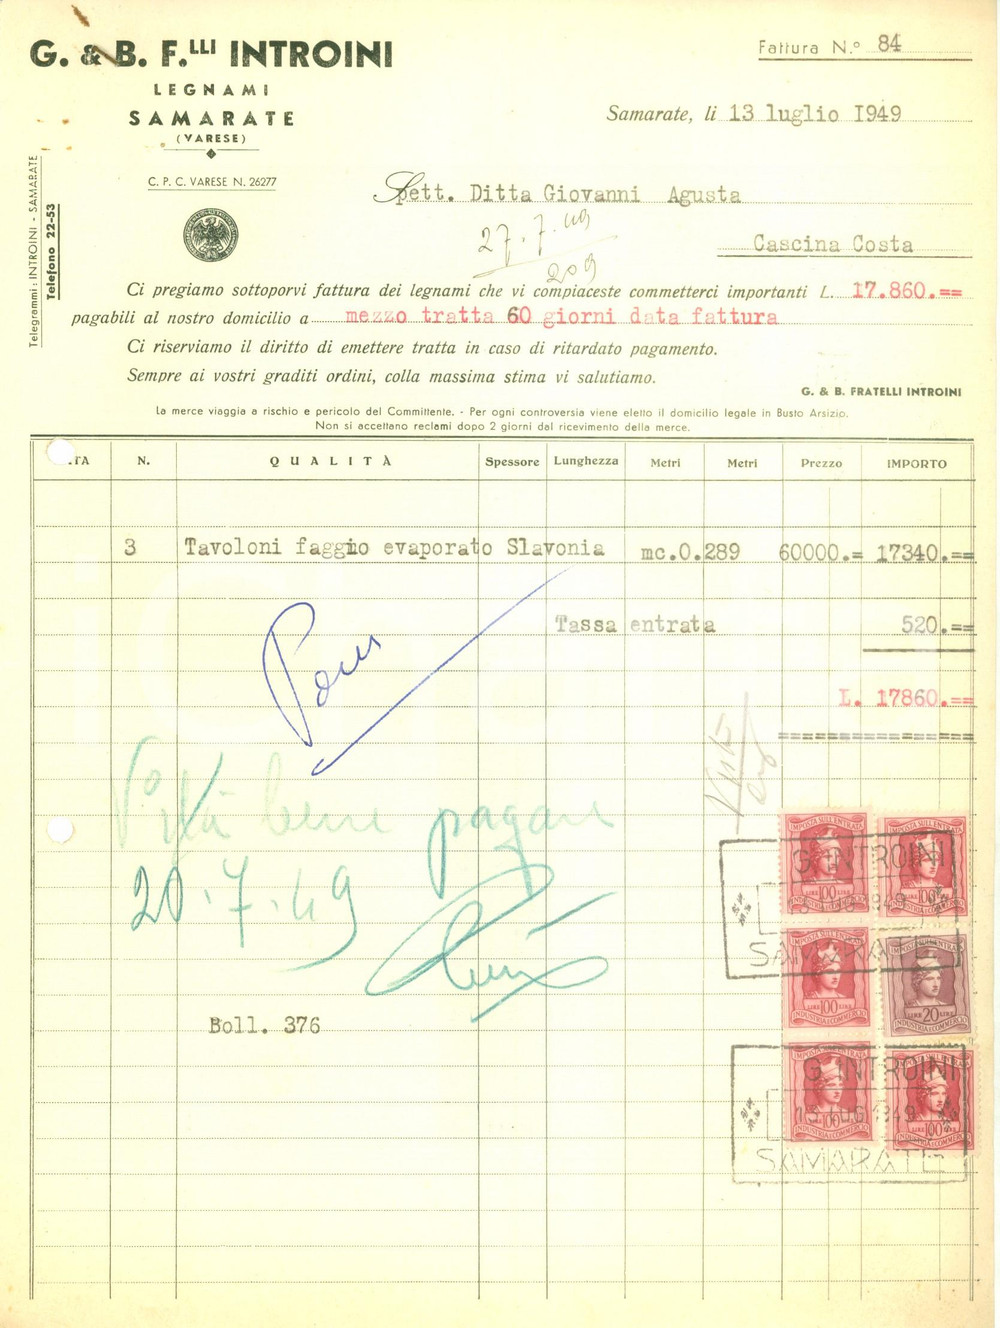 G. & B. F.LLI INTROINI
LEGNAMI
SAMARATE
(VARESE)
C. P. C. VARESE N. 26277
Telegrammi: INTROINI - SAMARATE
Telefono 22-53
Fattura N.° 84
Samarate, li 13 luglio I949
Spett. Ditta Giovanni Agusta
27.7.49
Cascina Costa
209
Ci pregiamo sottoporvi fattura dei legnami che vi compiaceste commetterci importanti L. 17.860.==
pagabili al nostro domicilio a mezzo tratta 60 giorni data fattura
Ci riserviamo il diritto di emettere tratta in caso di ritardato pagamento.
Sempre ai vostri graditi ordini, colla massima stima vi salutiamo.
G. & B. FRATELLI INTROINI
La merce viaggia a rischio e pericolo del Committente. - Per ogni controversia viene eletto il domicilio legale in Busto Arsizio.
Non si accettano reclami dopo 2 giorni dal ricevimento della merce.
TA N. QUALITÀ Spessore Lunghezza Metri Metri Prezzo IMPORTO
3 Tavoloni faggio evaporato Slavonia mc.0.289 60000.= 17340.==
Tassa entrata 520.==
L. 17860.==
bene pagare
20.7.49
Boll. 376
IMPOSTA SULL'ENTRATA
LIRE 100 LIRE
INDUSTRIA E COMMERCIO
IMPOSTA SULL'ENTRATA
LIRE 100
G. INTROINI
1949
SAMARATE
IMPOSTA SULL'ENTRATA
LIRE 100 LIRE
INDUSTRIA E COMMERCIO
IMPOSTA SULL'ENTRATA
LIRE 20 LIRE
INDUSTRIA E COMMERCIO
IMPOSTA SULL'ENTRATA
100
INDUSTRIA E COMMERCIO
LIRE 100 LIRE
INDUSTRIA E COMMERCIO
G. INTROINI
13 LUG 1949
SAMARATE